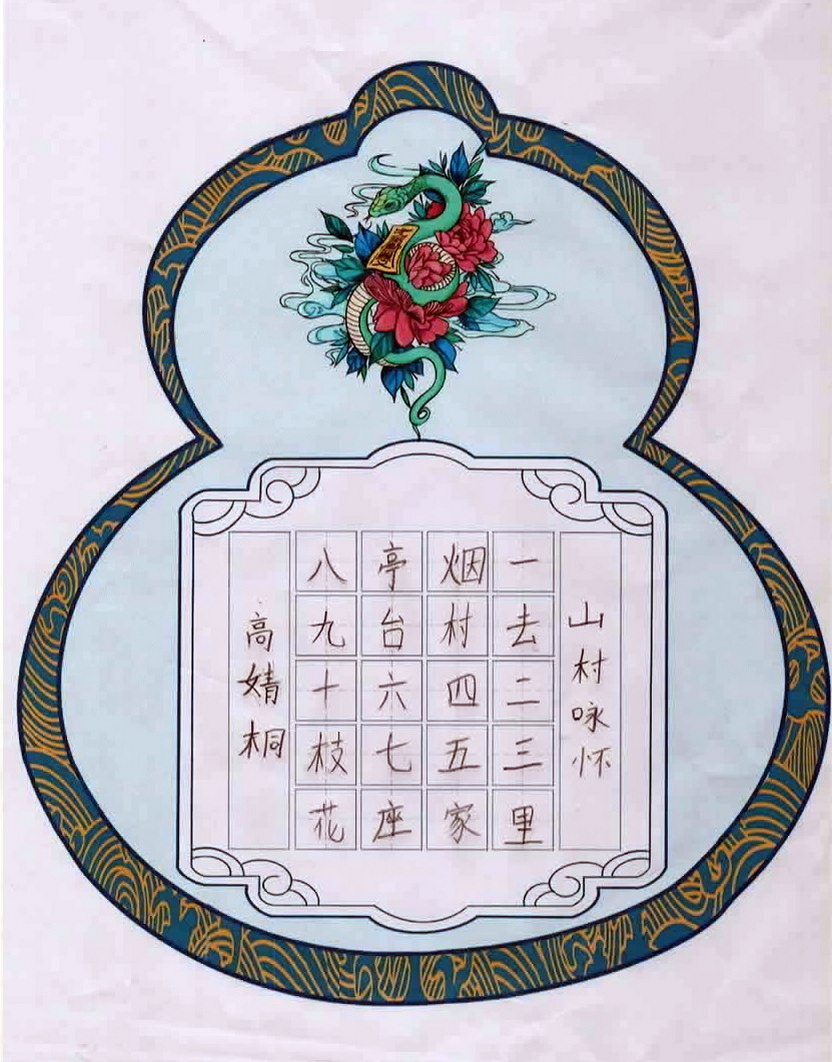 山村咏怀
一去二三里
烟村四五家
亭台六七座
八九十枝花
高婧桐